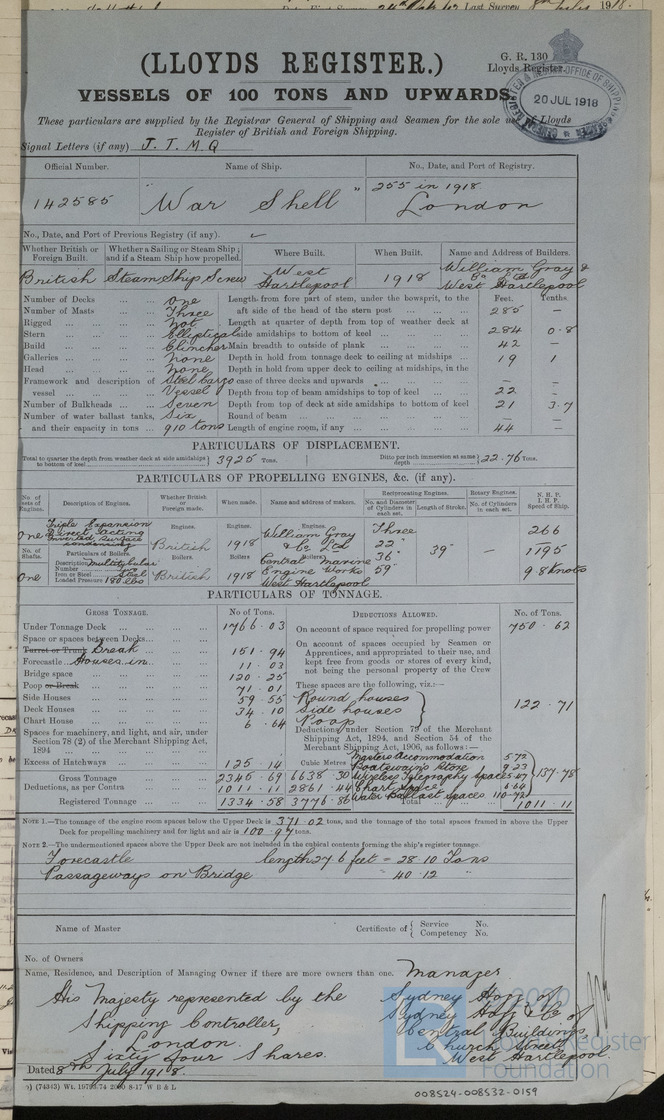 Last Survey 8th July 1918.
(LLOYDS REGISTER.)
G. R. 130
Lloyds Register.
VESSELS OF 100 TONS AND UPWARDS
20 JUL 1918
These particulars are supplied by the Registrar General of Shipping and Seamen for the sole use of Lloyds
Register of British and Foreign Shipping.
Signal Letters (if any) J. T. M. Q
Official Number. Name of Ship. No., Date, and Port of Registry.
142585 "War Shell" 255 in 1918
London
No., Date, and Port of Previous Registry (if any).
Whether British or Foreign Built. Whether a Sailing or Steam Ship; and if a Steam Ship how propelled. Where Built. When Built. Name and Address of Builders.
British Steam Ship, Screw West Hartlepool 1918 William Gray & Co Ld West Hartlepool
Number of Decks ... One Length from fore part of stem, under the bowsprit, to the Feet. Tenths.
Number of Masts ... Three aft side of the head of the stern post ... 285 —
Rigged ... not Length at quarter of depth from top of weather deck at
Stern ... Elliptical side amidships to bottom of keel ... 284 0.8
Build ... Clincher Main breadth to outside of plank ... 42 —
Galleries ... none Depth in hold from tonnage deck to ceiling at midships ... 19 1
Head ... none Depth in hold from upper deck to ceiling at midships, in the
Framework and description of Steel Cargo case of three decks and upwards — —
vessel ... Vessel Depth from top of beam amidships to top of keel ... 22 —
Number of Bulkheads ... Seven Depth from top of deck at side amidships to bottom of keel 21 3.7
Number of water ballast tanks, Six Round of beam ... — —
and their capacity in tons ... 910 tons Length of engine room, if any ... 44 —
PARTICULARS OF DISPLACEMENT.
Total to quarter the depth from weather deck at side amidships to bottom of keel 3925 Tons. Ditto per inch immersion at same depth 22.76 Tons.
PARTICULARS OF PROPELLING ENGINES, &c. (if any).
No. of sets of Engines. Description of Engines. Whether British or Foreign made. When made. Name and address of makers. Reciprocating Engines. Rotary Engines. N. H. P.
No. and Diameter of Cylinders in each set. Length of Stroke. No. of Cylinders in each set. I. H. P. Speed of Ship.
One Triple Expansion Direct Acting Inverted Surface Condensing Engines. British Engines. 1918 Engines. William Gray & Co Ld Three 22" 36" 59" 39" — 266
No. of Shafts. Particulars of Boilers. Boilers. Boilers. Boilers. 1195
One Description Multitubular British 1918 Central Marine Engine Works West Hartlepool 9.8 Knots
Number Two
Iron or Steel Steel
Loaded Pressure 180 lbs
PARTICULARS OF TONNAGE.
GROSS TONNAGE. No of Tons. DEDUCTIONS ALLOWED. No. of Tons.
Under Tonnage Deck ... 1766.03 On account of space required for propelling power 750.62
Space or spaces between Decks ... On account of spaces occupied by Seamen or
Turret or Trunk Break ... 151.94 Apprentices, and appropriated to their use, and
Forecastle Houses in ... 11.03 kept free from goods or stores of every kind,
Bridge space ... 120.25 not being the personal property of the Crew
Poop or Break ... 71.01 These spaces are the following, viz.:—
Side Houses ... 59.55 Round houses
Deck Houses ... 34.10 Side houses 122.71
Chart House ... 6.64 Poop
Spaces for machinery, and light, and air, under Section 78 (2) of the Merchant Shipping Act, 1894 Deductions under Section 79 of the Merchant Shipping Act, 1894, and Section 54 of the Merchant Shipping Act, 1906, as follows:—
Masters Accommodation 5.72
Excess of Hatchways ... 125.14 Cubic Metres Boatswain's Store 9.23
Gross Tonnage 2345.69 6638.30 Wireless Telegraphy space 5.47 137.78
Deductions, as per Contra 1011.11 2861.44 Chart space 6.64
Registered Tonnage ... 1334.58 3776.86 Water Ballast spaces 110.72
Total 1011.11
NOTE 1.—The tonnage of the engine room spaces below the Upper Deck is 371.02 tons, and the tonnage of the total spaces framed in above the Upper
Deck for propelling machinery and for light and air is 100.97 tons.
NOTE 2.—The undermentioned spaces above the Upper Deck are not included in the cubical contents forming the ship's register tonnage.
Forecastle length 27.6 feet = 28.10 Tons
Passageways on Bridge 40.12 "
Name of Master Certificate of Service No.
Competency No.
No. of Owners
Name, Residence, and Description of Managing Owner if there are more owners than one. Manager
His Majesty represented by the Sydney Hogg of
Shipping Controller, Sydney Hogg & Co of
London. Central Buildings,
Sixty four Shares. Church Street,
West Hartlepool.
Dated 8th July 1918.
2020
Lloyd's Register
Foundation
008524-008532-0159